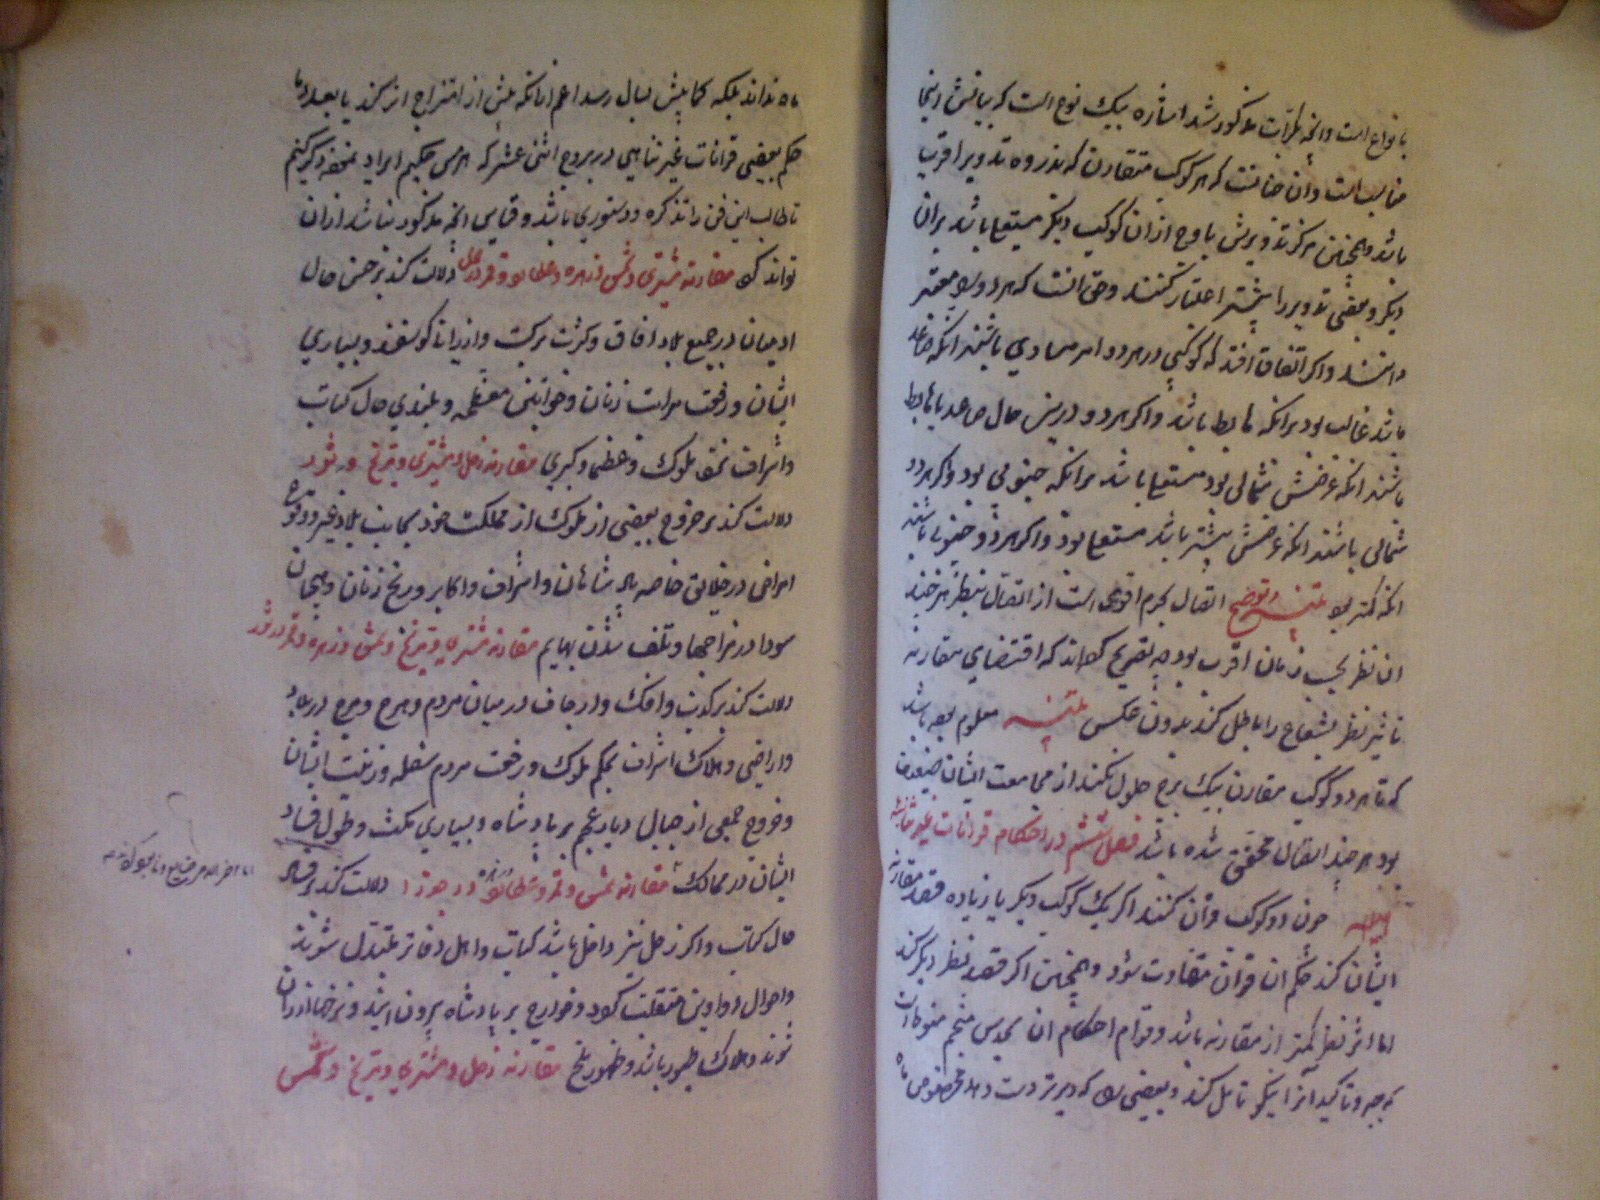 بانواع است وانچه بکرات مذکور شد اشاره بیک نوع است که بیانش اینجا
مناسب است وان چنانست که هر کوکب متقارن که بذروه تدویر اقرب
باشد وهمچنین مرکز تدویرش باوج ازان کوکب دیکر مستعلی باشد بران
دیکر وبعضی تدویر را بیشتر اعتبار کنند وحق انست که هر دو را معتبر
دانند واکر اتفاق افتد که کوکبی در هر دو امر مساوی باشند انکه صاعد
باشد غالب بود بر انکه هابط باشد واکر هر دو درین حال صاعد یا هابط
باشند انکه عرضش شمالی بود مستعلی باشد بر انکه جنوبی بود واکر هر دو
شمالی باشند انکه عرضش بیشتر باشد مستعلی بود واکر هر دو جنوبی باشند
انکه کمتر بود تنبیه وتوضیح اتصال بجرم اقوی است از اتصال بنظر هر چند
ان نظر بحسب زمان اقرب بود چه تصریح کرده‌اند که اقتضای مقارنه
تاثیر نظر بشعاع را باطل کند بدون عکس تنبیه معلوم بوده باشد
که تا هر دو کوکب مقارن بیک برج حلول نکنند از مجامعت ایشان ضعیف
بود هر چند اتصال محقق شده باشد فصل ششم در احکام قرانات غیر متناهیه
چون دو کوکب قران کنند اکر یک کوکب دیکر یا زیاده قصد مقارنه
ایشان کند حکم ان قران متفاوت شود وهمچنین اکر قصد نظر دیکر کند
اما اثر نظر کمتر از مقارنه باشد وقوام احکام ان بحدس منجم منوط است
که جهد وتاکید انرا نیکو تامل کند وبعضی که دیرتر دست دهد مخصوص ماه
ماه نداند بلکه کمابیش بسال رسد اعم ازانکه پیش از امتزاج اثر کند یا بعد
حکم بعضی قرانات غیر متناهی در بروج اثنی عشر که هرمس حکیم ایراد نموده ذکر کنیم
تا طالب این فن را تذکره ودستوری باشد وقیاس انچه مذکور نباشد ازان
تواند کرد مقارنه مشتری وشمس وزهره وعطارد وقمر در حمل دلالت کند بر حسن حال
ادمیان در جمیع بلاد افاق وکثرت برکت وارزانی کوسفند وبسیاری
ایشان ورفعت مراتب زنان وخواتین معظمه وبلندی حال کتاب
واشراف نحو ملوک وعظما وکبری مقارنه زحل ومشتری ومریخ در ثور
دلالت کند بر خروج بعضی از ملوک از مملکت خود بجانب بلاد غیر ووقوع
امراض در خلایق خاصه پادشاهان واشراف واکابر ورنج زنان وهیجان
سودا در مزاجها وتلف شدن بهایم مقارنه مشتری ومریخ وشمس وزهره وقمر در ثور
دلالت کند بر کذب وافک وارجاف در میان مردم وهرج ومرج در بلاد
واراضی وهلاک اشراف بحکم ملوک ورفعت مردم سفله وزینت ایشان
وخروج جمعی از جبال دیار عجم بر پادشاه وبسیاری مکث وطول فساد
ایشان در ممالک مقارنه شمس وقمر وعطارد در جوزا دلالت کند بر فساد
حال کتاب واکر زحل نیز داخل باشد کتاب واهل دفاتر مبتذل شوند
واحوال دواوین منقلب کردد وخوارج بر پادشاه بیرون ایند ونرخها ارزان
شوند وهلاک طیور باشد وظهور ملخ مقارنه زحل ومشتری ومریخ وشمس